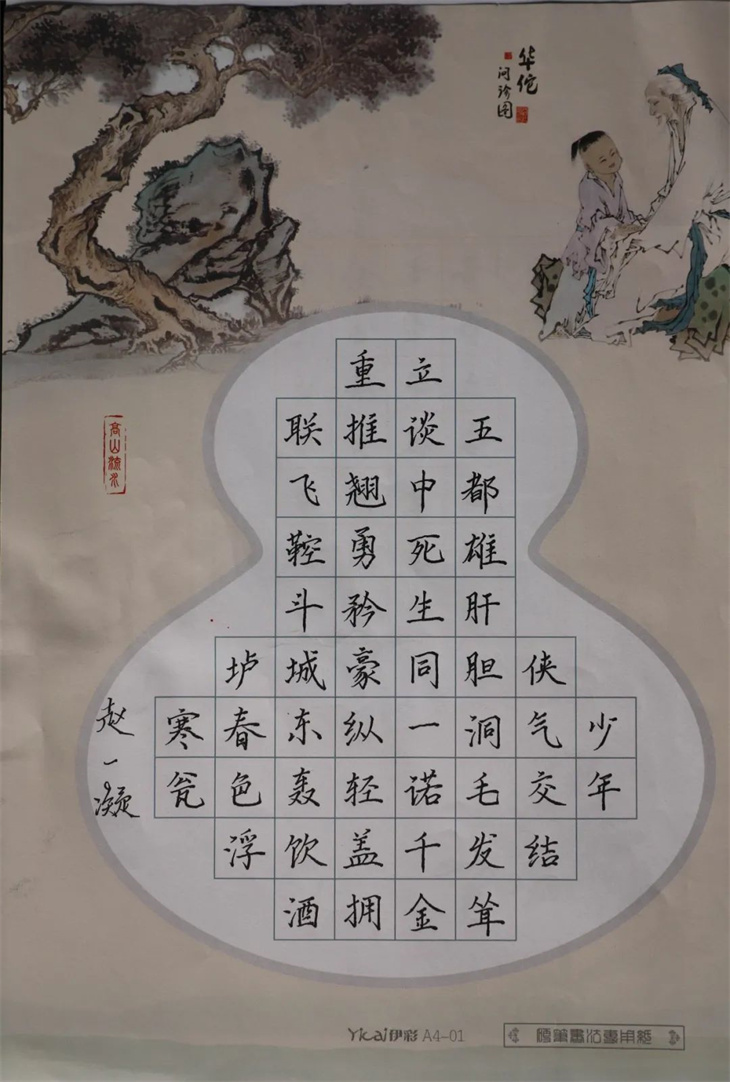 华佗
高山流水
少年
侠气交结
五都雄肝胆洞毛发耸
立谈中死生同一诺千金
重推翘勇矜豪纵轻盖拥
联飞鞚斗城东轰饮酒
垆春色浮
寒瓮
赵一凝
Yicai伊彩 A4-01
硬筆書法專用紙